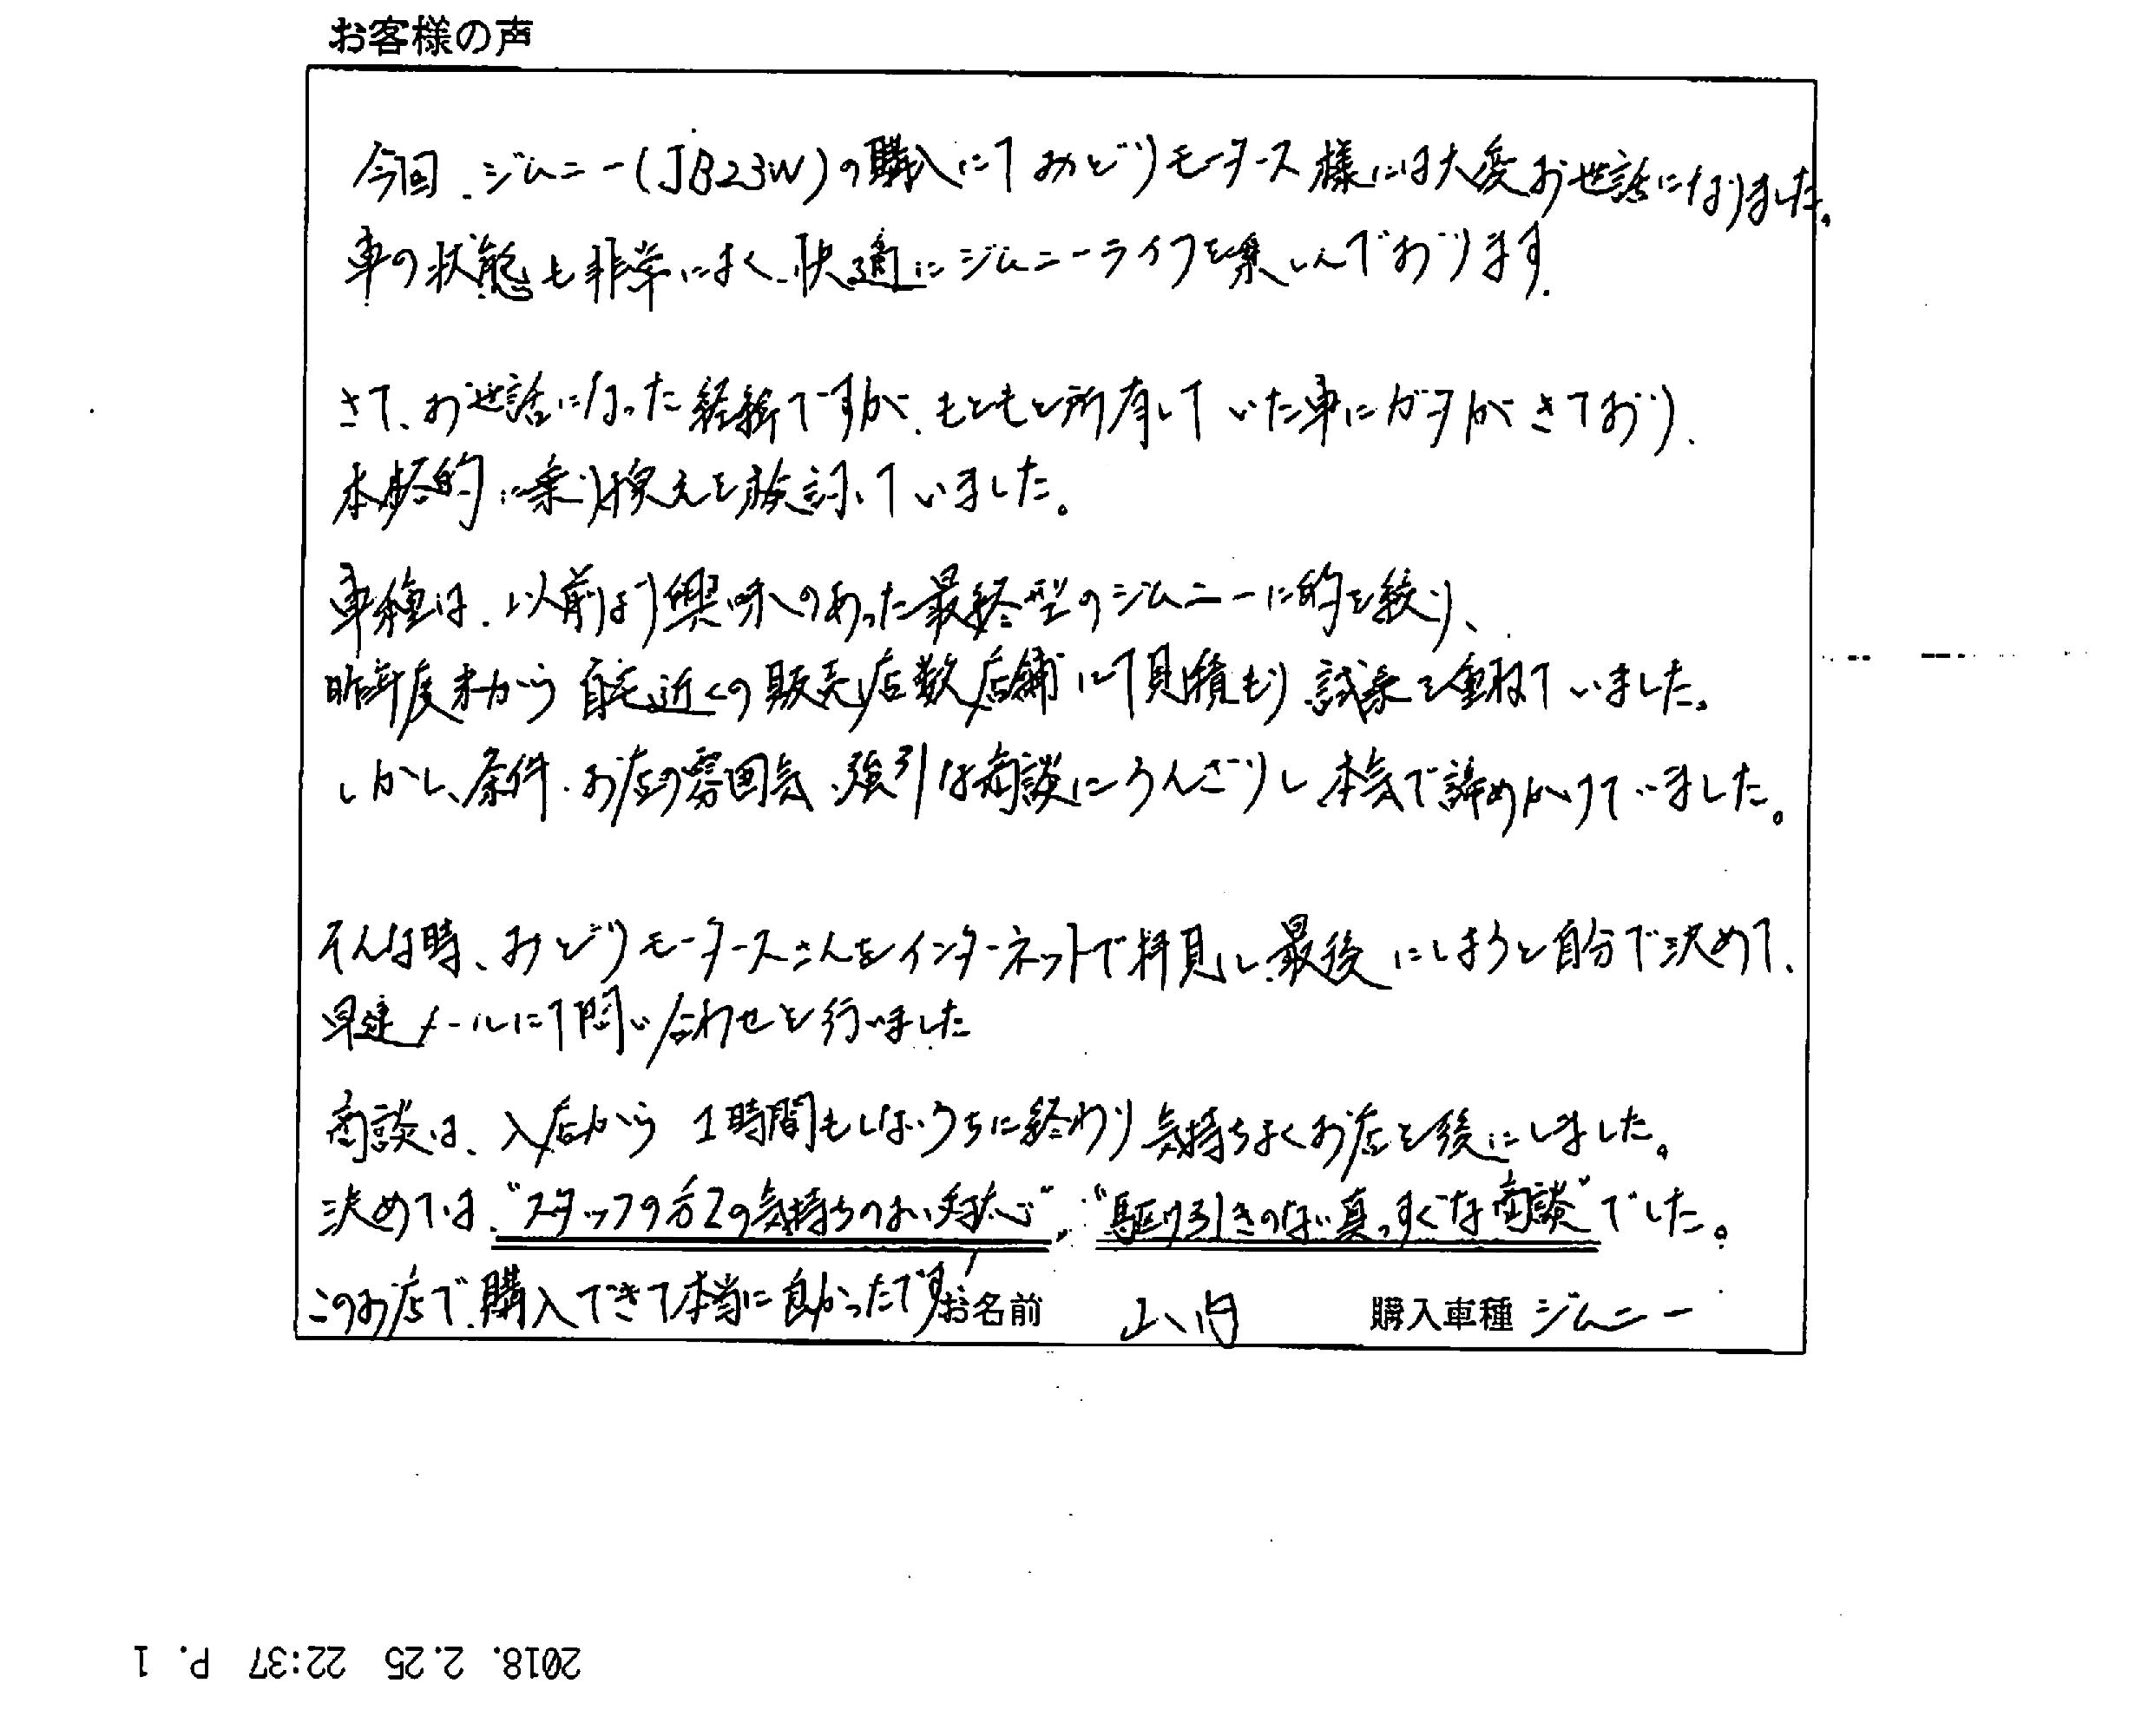 お客様の声
今回、ジムニー(JB23W)の購入にて みどりモータース様には大変お世話になりました。
車の状態も非常によく、快適にジムニーライフを楽しんでおります。
さて、お世話になった経緯ですが、もともと所有していた車にガタがきており、
本格的に乗り換えを検討していました。
車種は、以前より興味のあった最終型のジムニーに的を絞り、
昨年度末から 自宅近くの販売店数店舗にて見積もり、試乗を重ねていました。
しかし、条件、お店の雰囲気、強引な商談にうんざりし 本気で諦めかけていました。
そんな時、みどりモータースさんをインターネットで拝見し、最後にしようと自分で決めて、
早速メールにて問い合わせを行いました
商談は、入店から 1時間もしないうちに終わり 気持ちよくお店を後にしました。
決めては、“スタッフの方々の気持ちのよい対応”、“駆け引きのない真っすぐな商談”でした。
このお店で、購入できて本当に良かったです!
お名前 山内 購入車種 ジムニー
2018. 2.25 22:37 P. 1